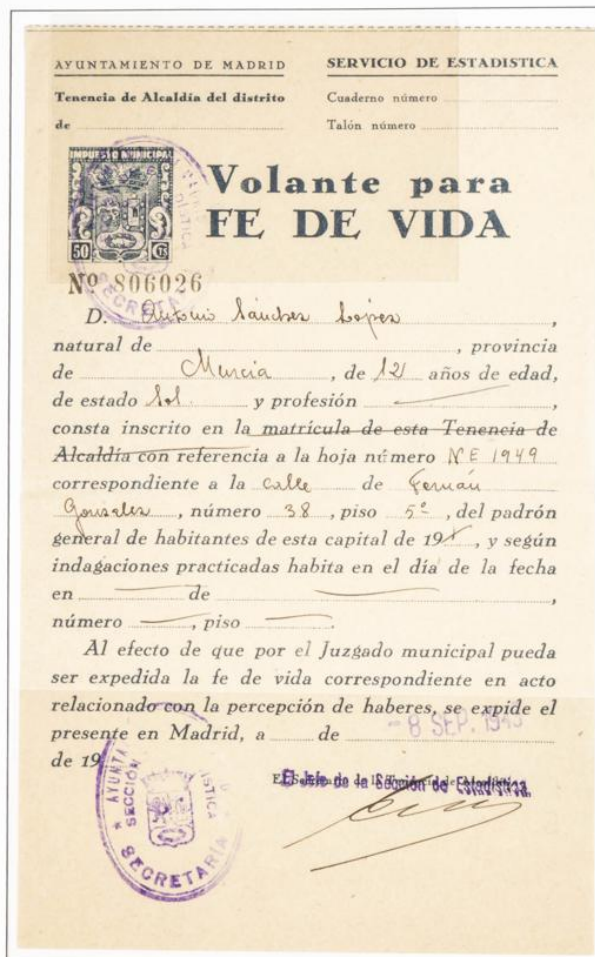 AYUNTAMIENTO DE MADRID
SERVICIO DE ESTADISTICA
Tenencia de Alcaldía del distrito
de
Cuaderno número
Talón número
IMPUESTO MUNICIPAL
50 Cts
Volante para
FE DE VIDA
Nº 806026
SECRETARIA
D. Antonio Sánchez López,
natural de , provincia
de Murcia, de 12 años de edad,
de estado Sol. y profesión ,
consta inscrito en la matrícula de esta Tenencia de
Alcaldía con referencia a la hoja número N E 1949
correspondiente a la calle de Fernán
Gonsalez, número 38, piso 5º, del padrón
general de habitantes de esta capital de 19 , y según
indagaciones practicadas habita en el día de la fecha
en de ,
número , piso .
Al efecto de que por el Juzgado municipal pueda
ser expedida la fe de vida correspondiente en acto
relacionado con la percepción de haberes, se expide el
presente en Madrid, a de
- 8 SEP.
de 19
El Jefe de la Sección de Estadística.
AYUNTA
SECCIÓN
SECRETARIA